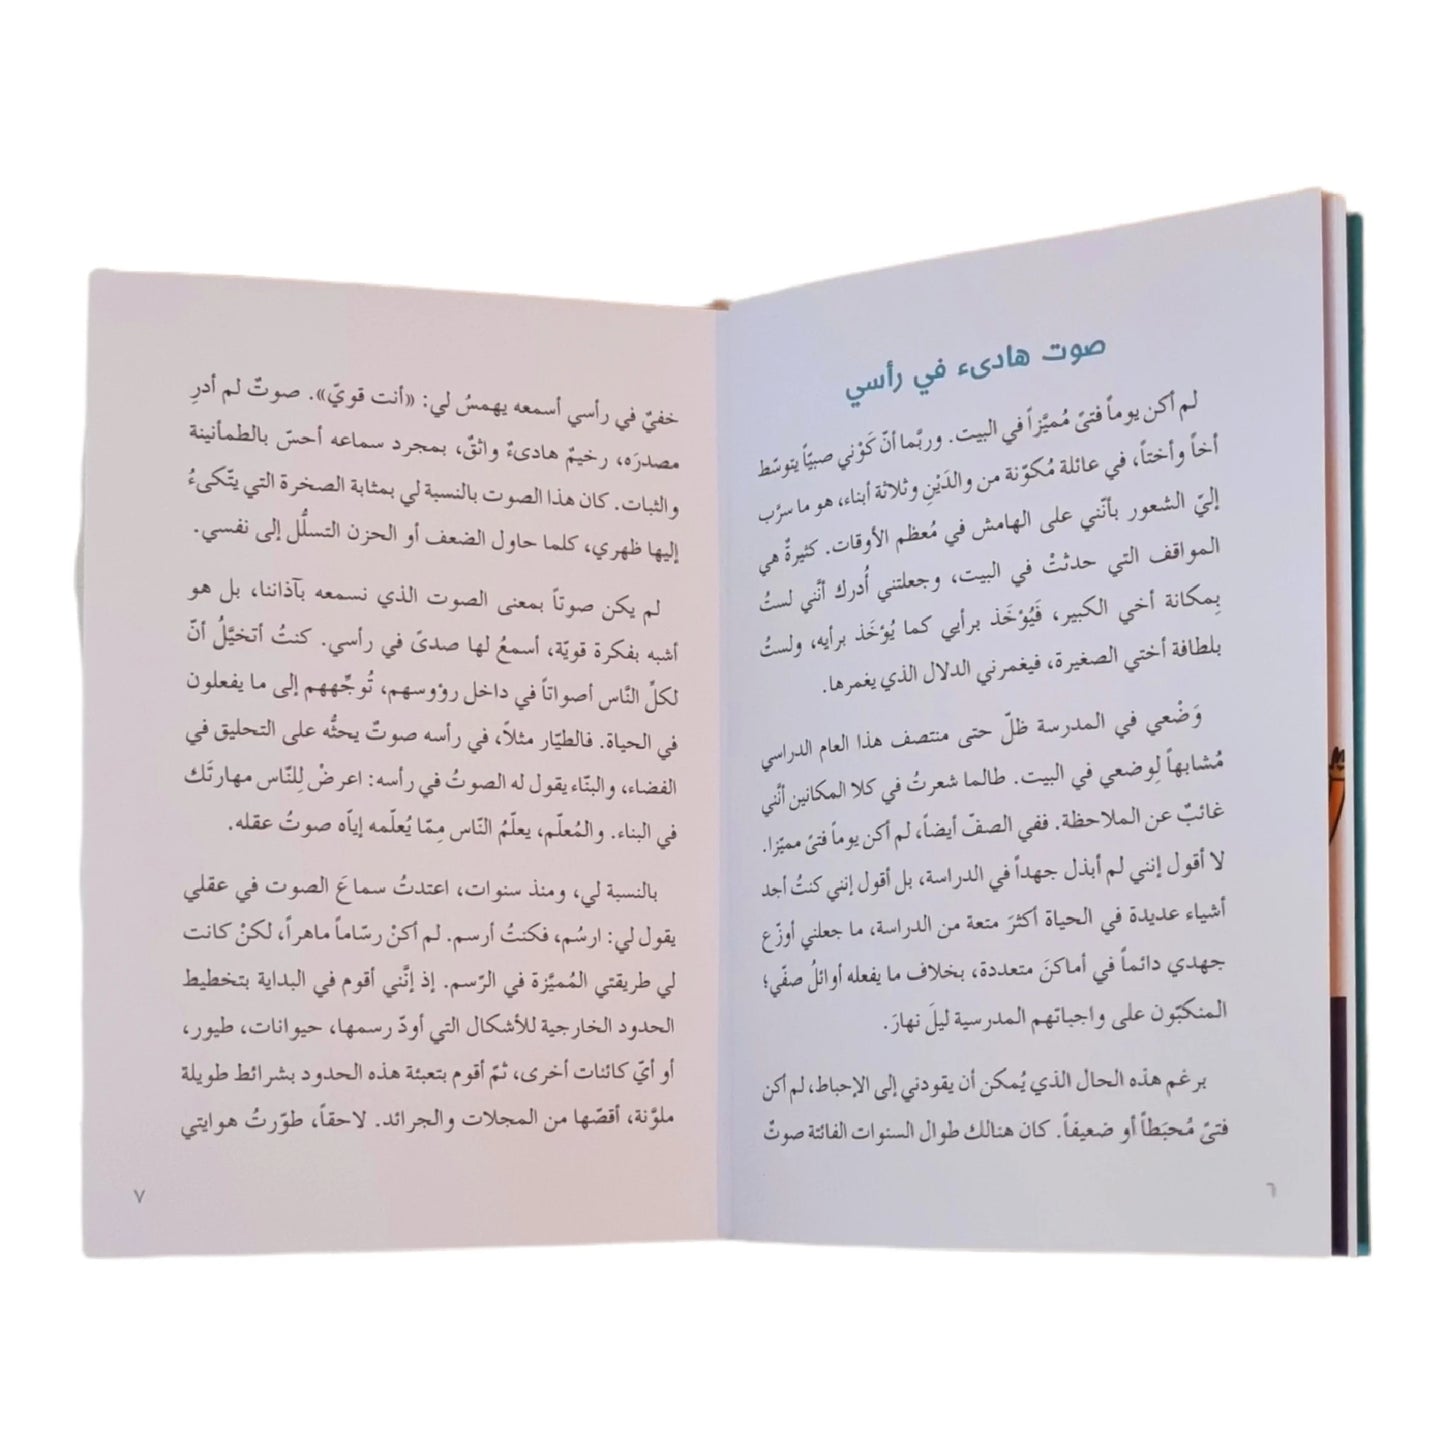 صوت هادىء في رأسي
لم أكن يوماً فتىً مُميَّزاً في البيت. وربَّما أنّ كَوْني صبيّاً يتوسّط
أخاً وأختاً، في عائلة مُكوّنة من والدَيْنِ وثلاثة أبناء، هو ما سرَّب
إليّ الشعور بأنّني على الهامش في مُعظم الأوقات. كثيرةٌ هي
المواقف التي حدثتْ في البيت، وجعلتني أُدرك أنَّني لستُ
بِمكانة أخي الكبير، فَيُؤخَذ برأيي كما يُؤخَذ برأيه، ولستُ
بلطافة أختي الصغيرة، فيغمرني الدلال الذي يغمرها.
وَضْعي في المدرسة ظلّ حتى منتصف هذا العام الدراسي
مُشابهاً لِوضعي في البيت. طالما شعرتُ في كلا المكانين أنَّني
غائبٌ عن الملاحظة. ففي الصفّ أيضاً، لم أكن يوماً فتىً مميّزا.
لا أقول إنني لم أبذل جهداً في الدراسة، بل أقول إنني كنتُ أجد
أشياء عديدة في الحياة أكثرَ متعة من الدراسة، ما جعلني أوزّع
جهدي دائماً في أماكنَ متعددة، بخلاف ما يفعله أوائلُ صفّي؛
المنكبّون على واجباتهم المدرسية ليلَ نهارَ.
برغم هذه الحال الذي يُمكن أن يقودني إلى الإحباط، لم أكن
فتىً مُحبَطاً أو ضعيفاً. كان هنالك طوال السنوات الفائتة صوتٌ
٦
خفيٌ في رأسي أسمعه يهمسُ لي: «أنت قويّ». صوتٌ لم أدرِ
مصدرَه، رخيمٌ هادىءٌ واثقٌ، بمجرد سماعه أحسّ بالطمأنينة
والثبات. كان هذا الصوت بالنسبة لي بمثابة الصخرة التي يتّكىءُ
إليها ظهري، كلما حاول الضعف أو الحزن التسلُّل إلى نفسي.
لم يكن صوتاً بمعنى الصوت الذي نسمعه بآذاننا، بل هو
أشبه بفكرة قويّة، أسمعُ لها صدىً في رأسي. كنتُ أتخيَّلُ أنّ
لكلِّ النَّاس أصواتاً في داخل رؤوسهم، تُوجِّههم إلى ما يفعلون
في الحياة. فالطيّار مثلاً، في رأسه صوتٌ يحثُّه على التحليق في
الفضاء، والبنّاء يقول له الصوتُ في رأسه: اعرضْ لِلنّاس مهارتَك
في البناء. والمُعلّم، يعلّمُ النّاس مِمّا يُعلّمه إياّه صوتُ عقله.
بالنسبة لي، ومنذ سنوات، اعتدتُ سماعَ الصوت في عقلي
يقول لي: ارسُم، فكنتُ أرسم. لم أكنْ رسّاماً ماهراً، لكنْ كانت
لي طريقتي المُميَّزة في الرّسم. إذ إنَّني أقوم في البداية بتخطيط
الحدود الخارجية للأشكال التي أودّ رسمها، حيوانات، طيور،
أو أيّ كائنات أخرى، ثمّ أقوم بتعبئة هذه الحدود بشرائط طويلة
ملوَّنة، أقصّها من المجلات والجرائد. لاحقاً، طوّرتُ هوايتي
٧